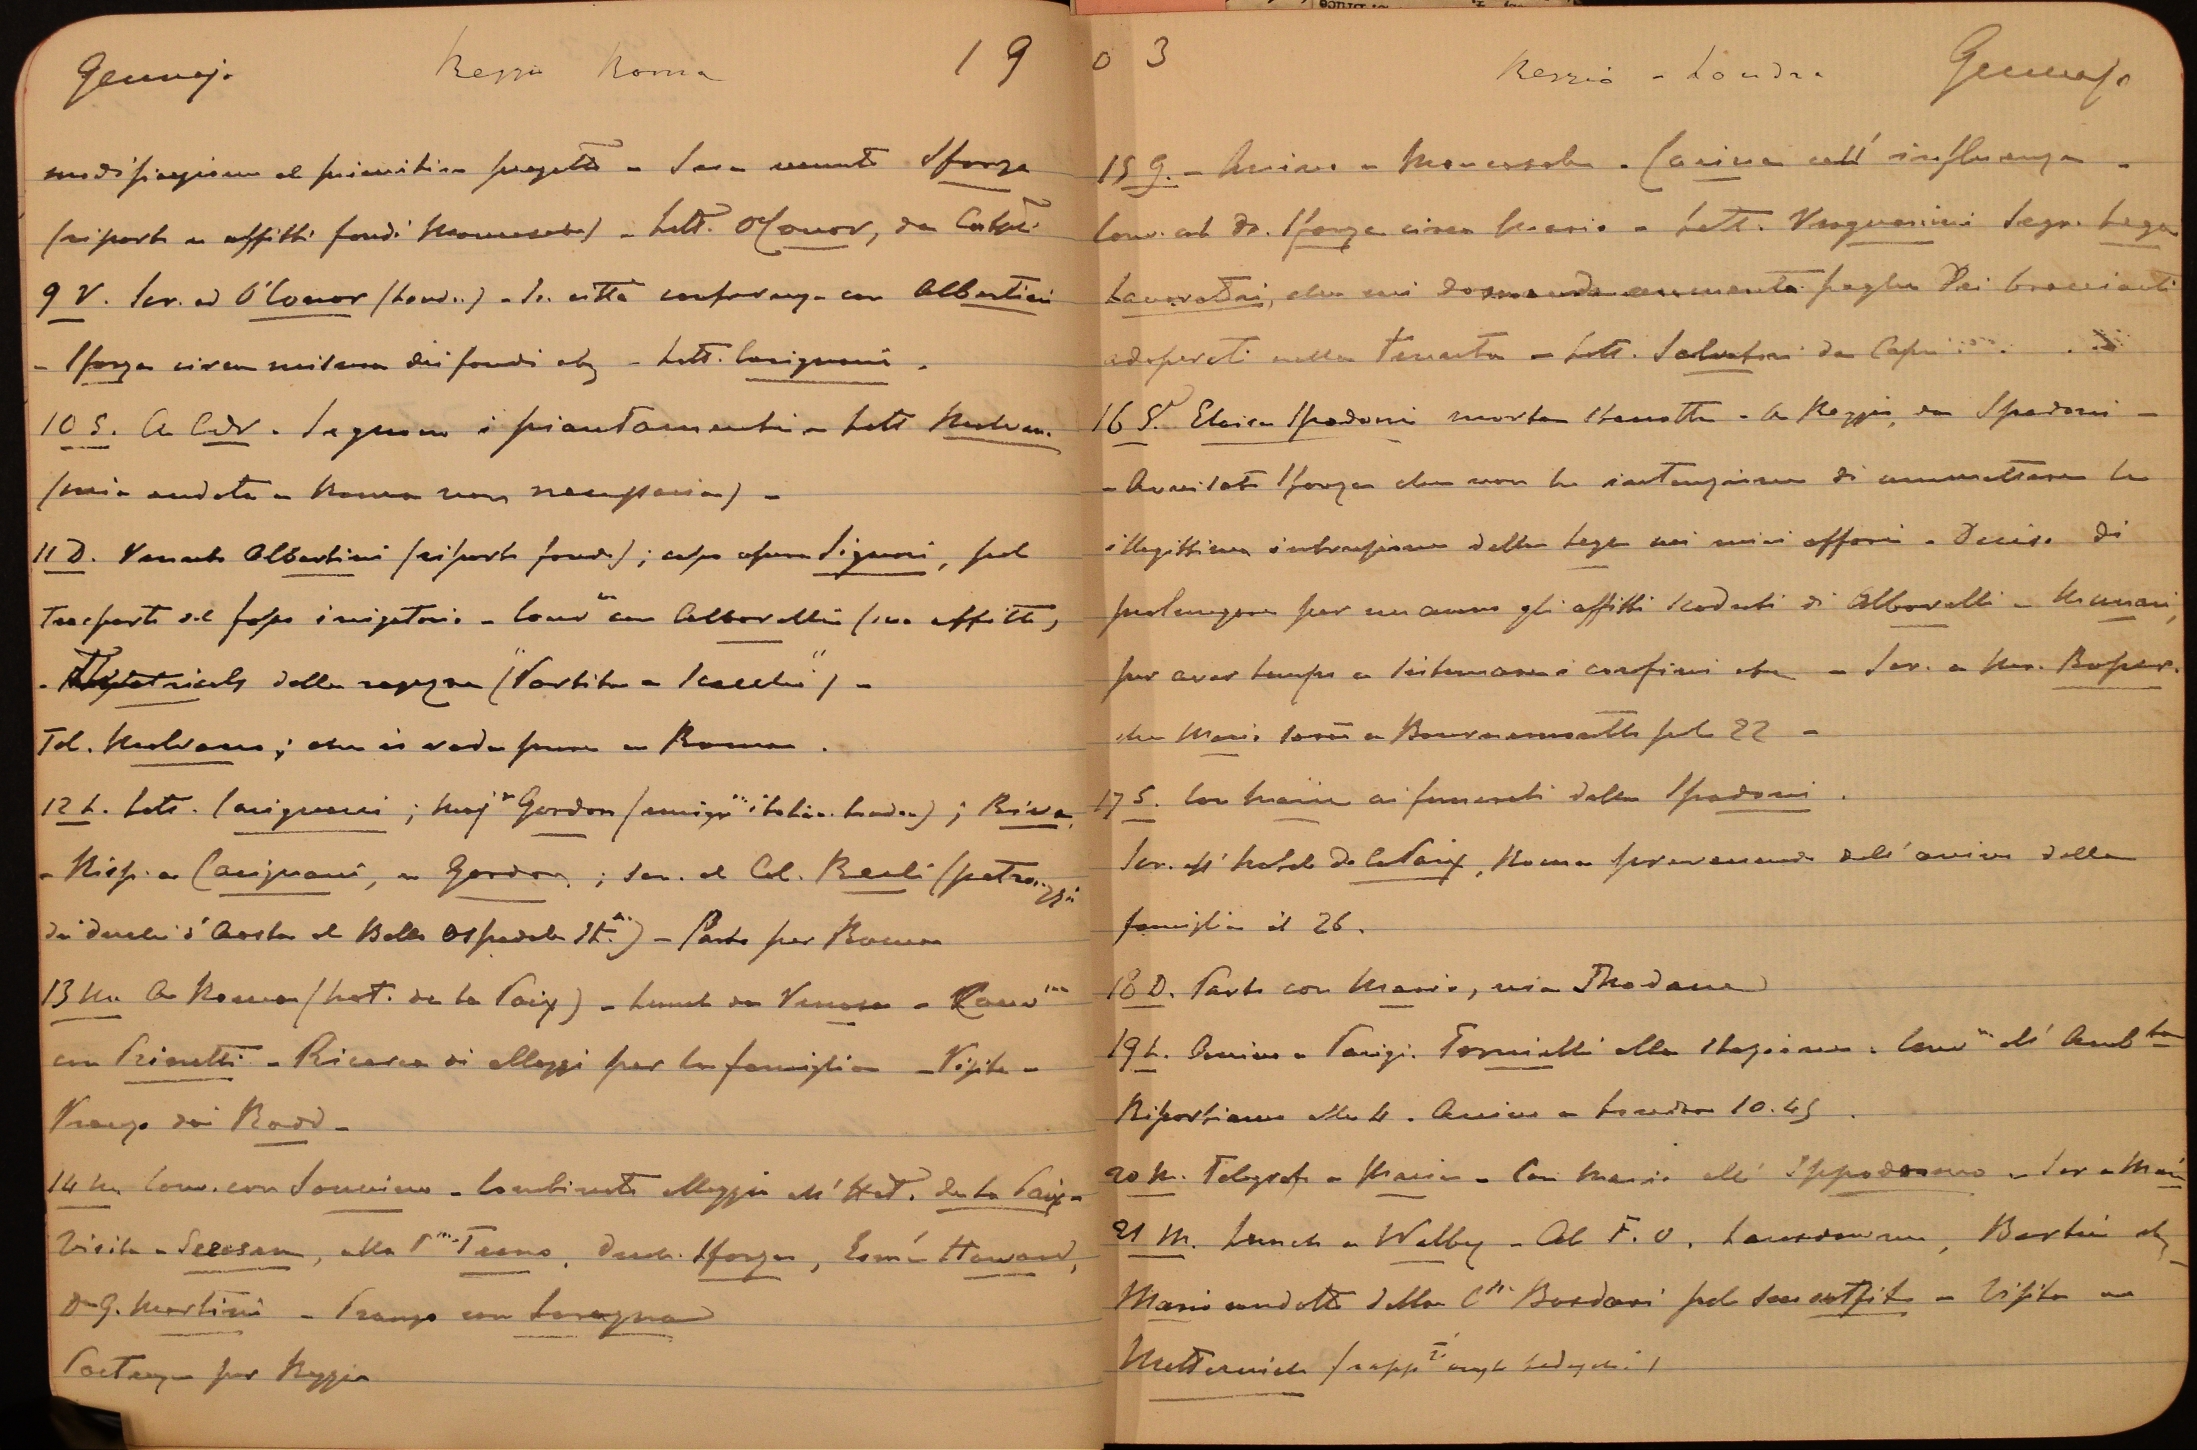 Gennajo Reggio Roma 19
modificazione al primitivo progetto - Sera venuto Sforza
(riparto e affitti fondi Mancasale) - Lett. O'Conor, da
9 V. Scr. ad O'Conor (Lond.) - In città conferenza con Albertini
- Sforza circa misura dei fondi etc - Lett. Carignani.
10 S. A Cdr. Segnare i piantamenti - Lett Malvano
(mia andata a Roma non necessaria) -
11 D. Venuto Albertini (riparto fondi); capo opera Signori, pel
trasporto del fosso irrigatorio - Convne con Alborelli (suo affitto)
- Theatricals delle ragazze ("Partita a Scacchi") -
Tel. Malvano; che io vada pure a Roma.
12 L. Lett. Carignani; Majr Gordon (emigrni italia. Londra); Riva
- Risp. a Carignani, a Gordon; scr. al Col. Reali
dei duchi d'Aosta al Ballo Ospedale It.) - Parto per Roma
13 Ma A Roma (hot. de la Paix) - Lunch da Venosa - Convne
con Prinetti - Ricerca di alloggi per la famiglia - Visite -
Pranzo dai Rodd -
14 Me Conv. con Sonnino - Combinato alloggio all'Hot. de la Paix -
Visite a , alla Pssa Teano, duch. Sforza, Esmé Howard,
Dr G. Martini - Pranzo con
Partenza per Reggio
03 Reggio - Londra Gennajo
15 G. - Arrivo a Mancasale. Carina coll'influenza -
Conv. col Dr. Sforza circa Mario - Lett. Segr. Lega
Lavoratori, che mi domanda aumento paghe dei braccianti
adoperati nella tenuta - Lett. Salvatori da
16 V. Eloisa Spadoni morta stanotte - A Reggio, da Spadoni -
- Avvisato Sforza che non ho intenzione di ammettere la
illegittima intrusione della Lega nei miei affari - Deciso di
prolungare per un anno gli affitti scaduti di Alborelli - Munari,
per aver tempo a sistemare i confini etc - Scr. a Mr. Roper.
che Mario sarà a Bournemouth pel 22 -
17 S. Con Maria ai funerali della Spadoni.
Scr. all'hotel de la Paix, Roma prevenendo dell'arrivo della
famiglia il 26.
18 D. Parto con Mario, via Modane
19 L. Arrivo a Parigi. Tornielli alla stazione. Convne all'Ambta
Ripartiamo alle 4. Arrivo a Londra 10.45.
20 M. Telegrafo a Maria - Con Mario all'Ippodromo - Scr a Maria
21 M. Lunch a Welby - Al F.O. Lansdowne, Bertie etc
Mario condotto dalla Cssa Bordari pel suo outfit - Visita a
Metternich